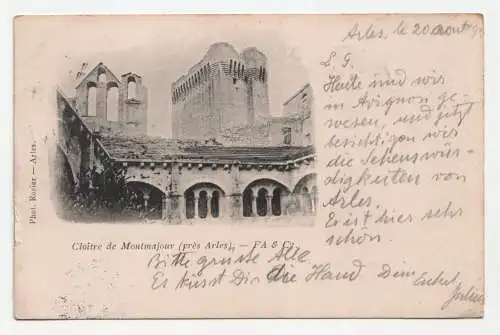 Arles, le 20 août
L. G.
Heute sind wir
in Avignon ge-
wesen, und jetzt
besichtigen wir
die Sehenswür-
digkeiten von
Arles.
Es ist hier sehr
schön.
Phot. — Arles.
Cloître de Montmajour (près Arles). — FA & Cs
Bitte grüsse Alle
Es küsst Dir die Hand Dein Enkel
Julius